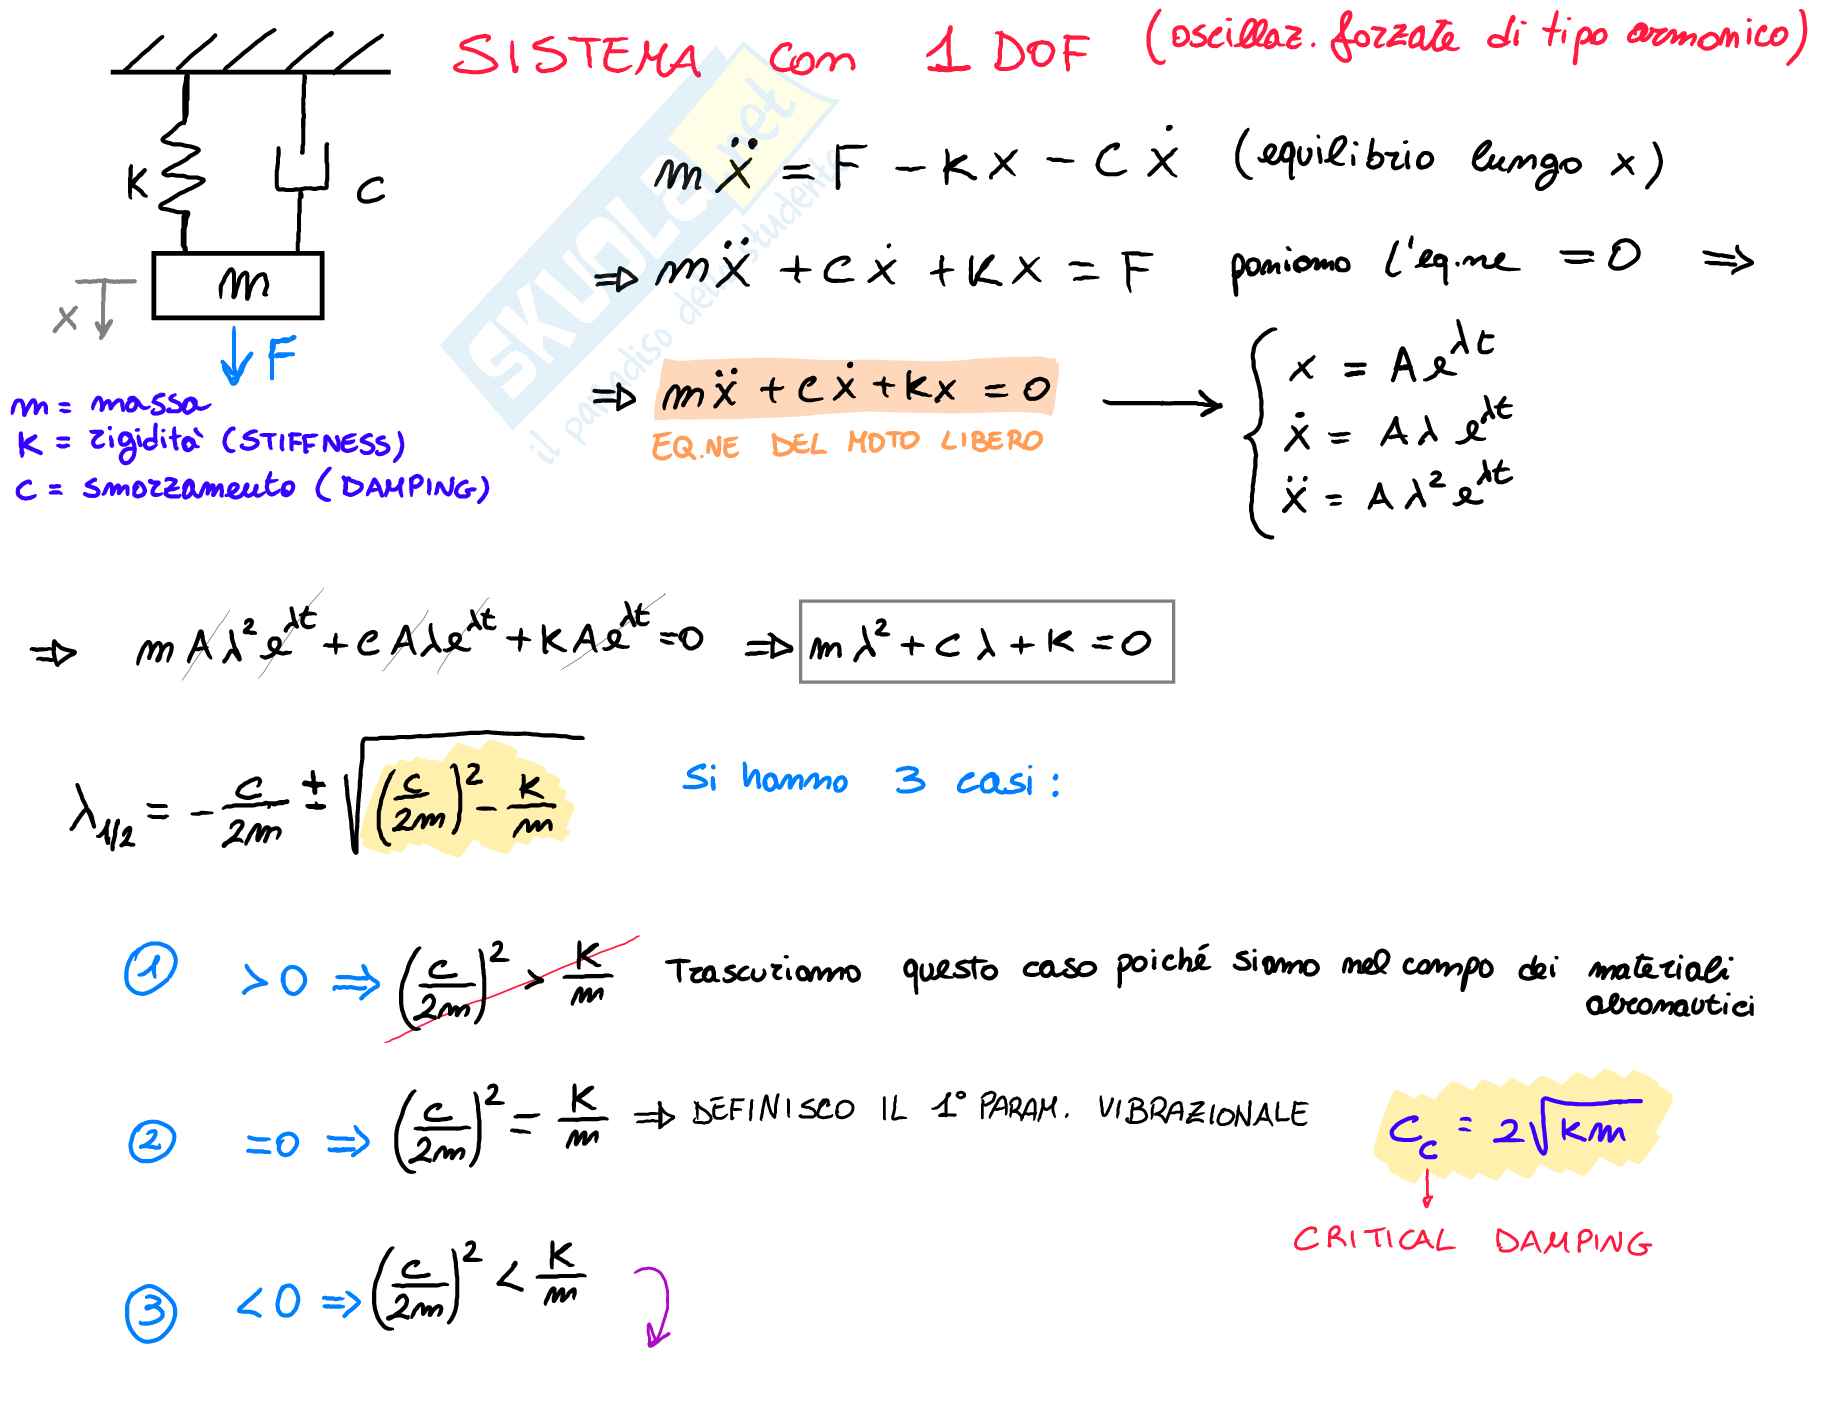 SISTEMA con 1 DOF (oscillaz. forzate di tipo armonico)
K
C
m
x
F
m = massa
K = rigidità (STIFFNESS)
C = smorzamento (DAMPING)
mẍ = F - Kx - Cẋ (equilibrio lungo x)
⇒ mẍ + Cẋ + Kx = F poniamo l'eq.ne = 0 ⇒
⇒ mẍ + Cẋ + Kx = 0
EQ.NE DEL MOTO LIBERO
x = A e^λt
ẋ = A λ e^λt
ẍ = A λ² e^λt
⇒ m A λ² e^λt + C A λ e^λt + K A e^λt = 0 ⇒ m λ² + C λ + K = 0
λ1/2 = - C/2m ± √((C/2m)² - K/m) Si hanno 3 casi:
1 > 0 ⇒ (C/2m)² > K/m Trascuriamo questo caso poiché siamo nel campo dei materiali
aeronautici
2 = 0 ⇒ (C/2m)² = K/m ⇒ DEFINISCO IL 1° PARAM. VIBRAZIONALE Cc = 2√Km
CRITICAL DAMPING
3 < 0 ⇒ (C/2m)² < K/m
SKUOLA.net
il paradiso dello studente